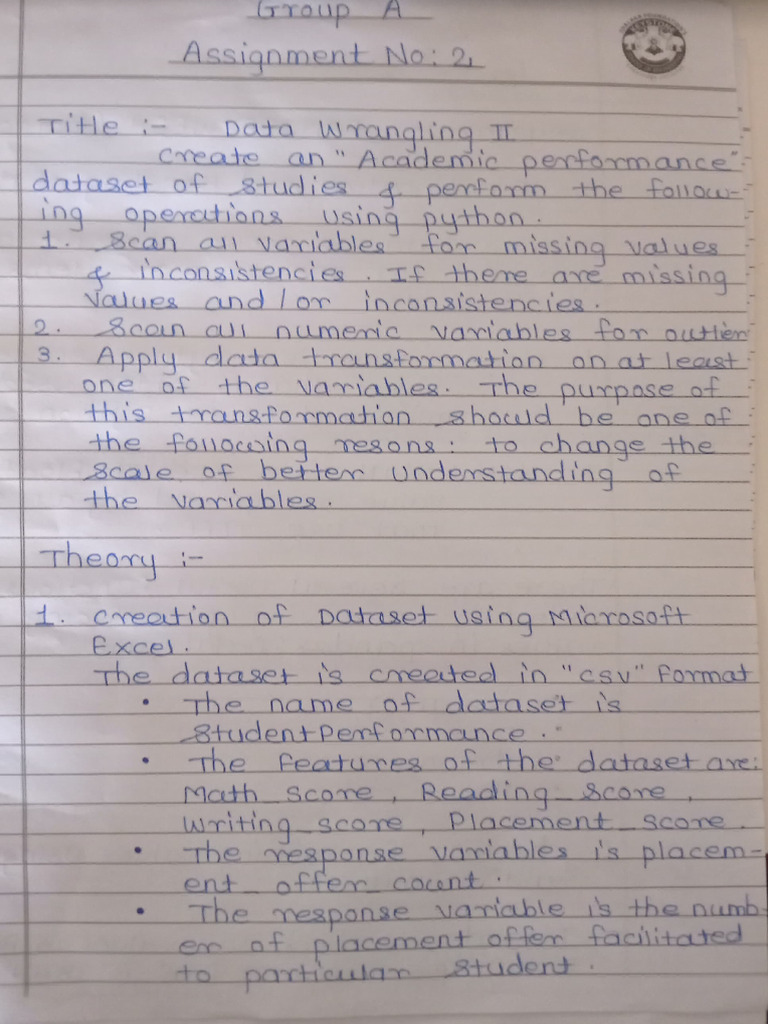 Group A
Assignment No: 2
Title :- Data Wrangling II
create an "Academic performance"
dataset of studies & perform the follow-
ing operations using python.
1. Scan all variables for missing values
& inconsistencies. If there are missing
values and/or inconsistencies.
2. Scan all numeric variables for outlier
3. Apply data transformation on at least
one of the variables. The purpose of
this transformation should be one of
the following resons: to change the
scale of better understanding of
the variables.
Theory :-
1. creation of Dataset using Microsoft
Excel.
The dataset is created in "csv" format
• The name of dataset is
StudentPerformance.
• The features of the dataset are:
Math_score, Reading_score,
Writing_score, Placement_score.
• The response variables is placem-
ent_offer_count.
• The response variable is the numb-
er of placement offer facilitated
to particular student.